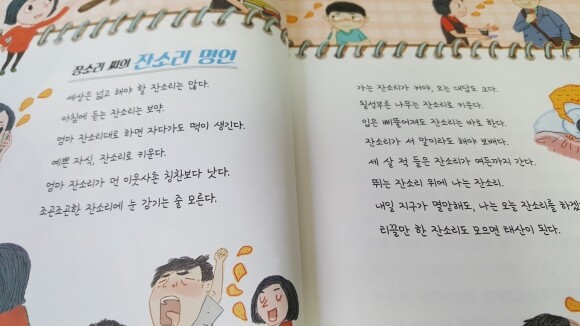 장소리 씨의 잔소리 명언
세상은 넓고 해야 할 잔소리는 많다.
아침에 듣는 잔소리는 보약.
엄마 잔소리대로 하면 자다가도 떡이 생긴다.
예쁜 자식, 잔소리로 키운다.
엄마 잔소리가 먼 이웃사촌 칭찬보다 낫다.
조곤조곤한 잔소리에 눈 감기는 줄 모른다.
가는 잔소리가 커야, 오는 대답도 크다.
될성부른 나무는 잔소리로 키운다.
입은 삐뚤어져도 잔소리는 바로 한다.
잔소리가 서 말이라도 해야 보배다.
세 살 적 들은 잔소리가 여든까지 간다.
뛰는 잔소리 위에 나는 잔소리.
내일 지구가 멸망해도, 나는 오늘 잔소리를 하겠
티끌만 한 잔소리도 모으면 태산이 된다.